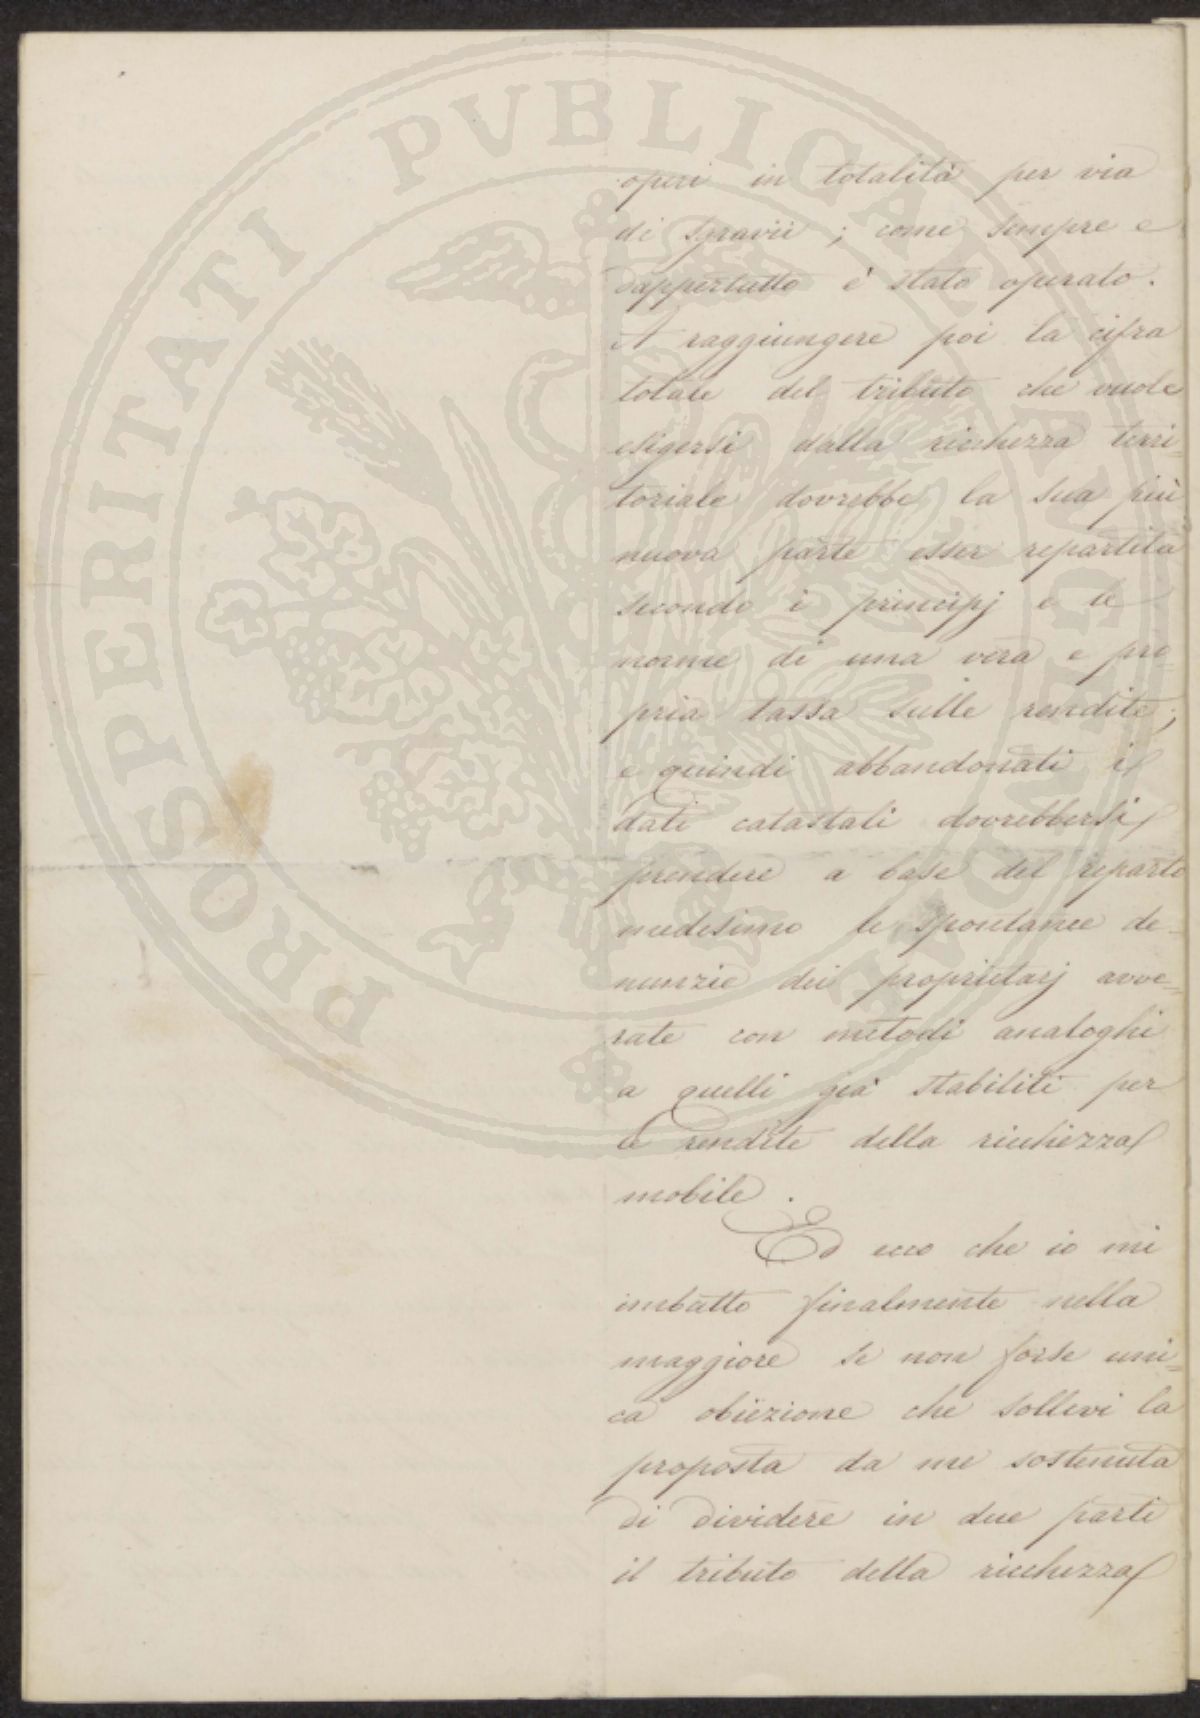 operi in totalità per via
di sgravii ; come sempre e
dappertutto è stato operato.
A raggiungere poi la cifra
totale del tributo che vuole
esigersi dalla ricchezza terri-
toriale dovrebbe la sua più
nuova parte esser repartita
secondo i principj e le
norme di una vera e pro-
pria tassa sulle rendite;
e quindi abbandonati i
dati catastali dovrebbersi
prendere a base del reparto
medesimo le spontanee de-
nunzie dei proprietarj avve-
rate con metodi analoghi
a quelli già stabiliti per
le rendite della ricchezza
mobile.
Ed ecco che io mi
imbatto finalmente nella
maggiore se non forse uni-
ca obiezione che sollevi la
proposta da me sostenuta
di dividere in due parti
il tributo della ricchezza
PROSPERITATI PVBLICAE